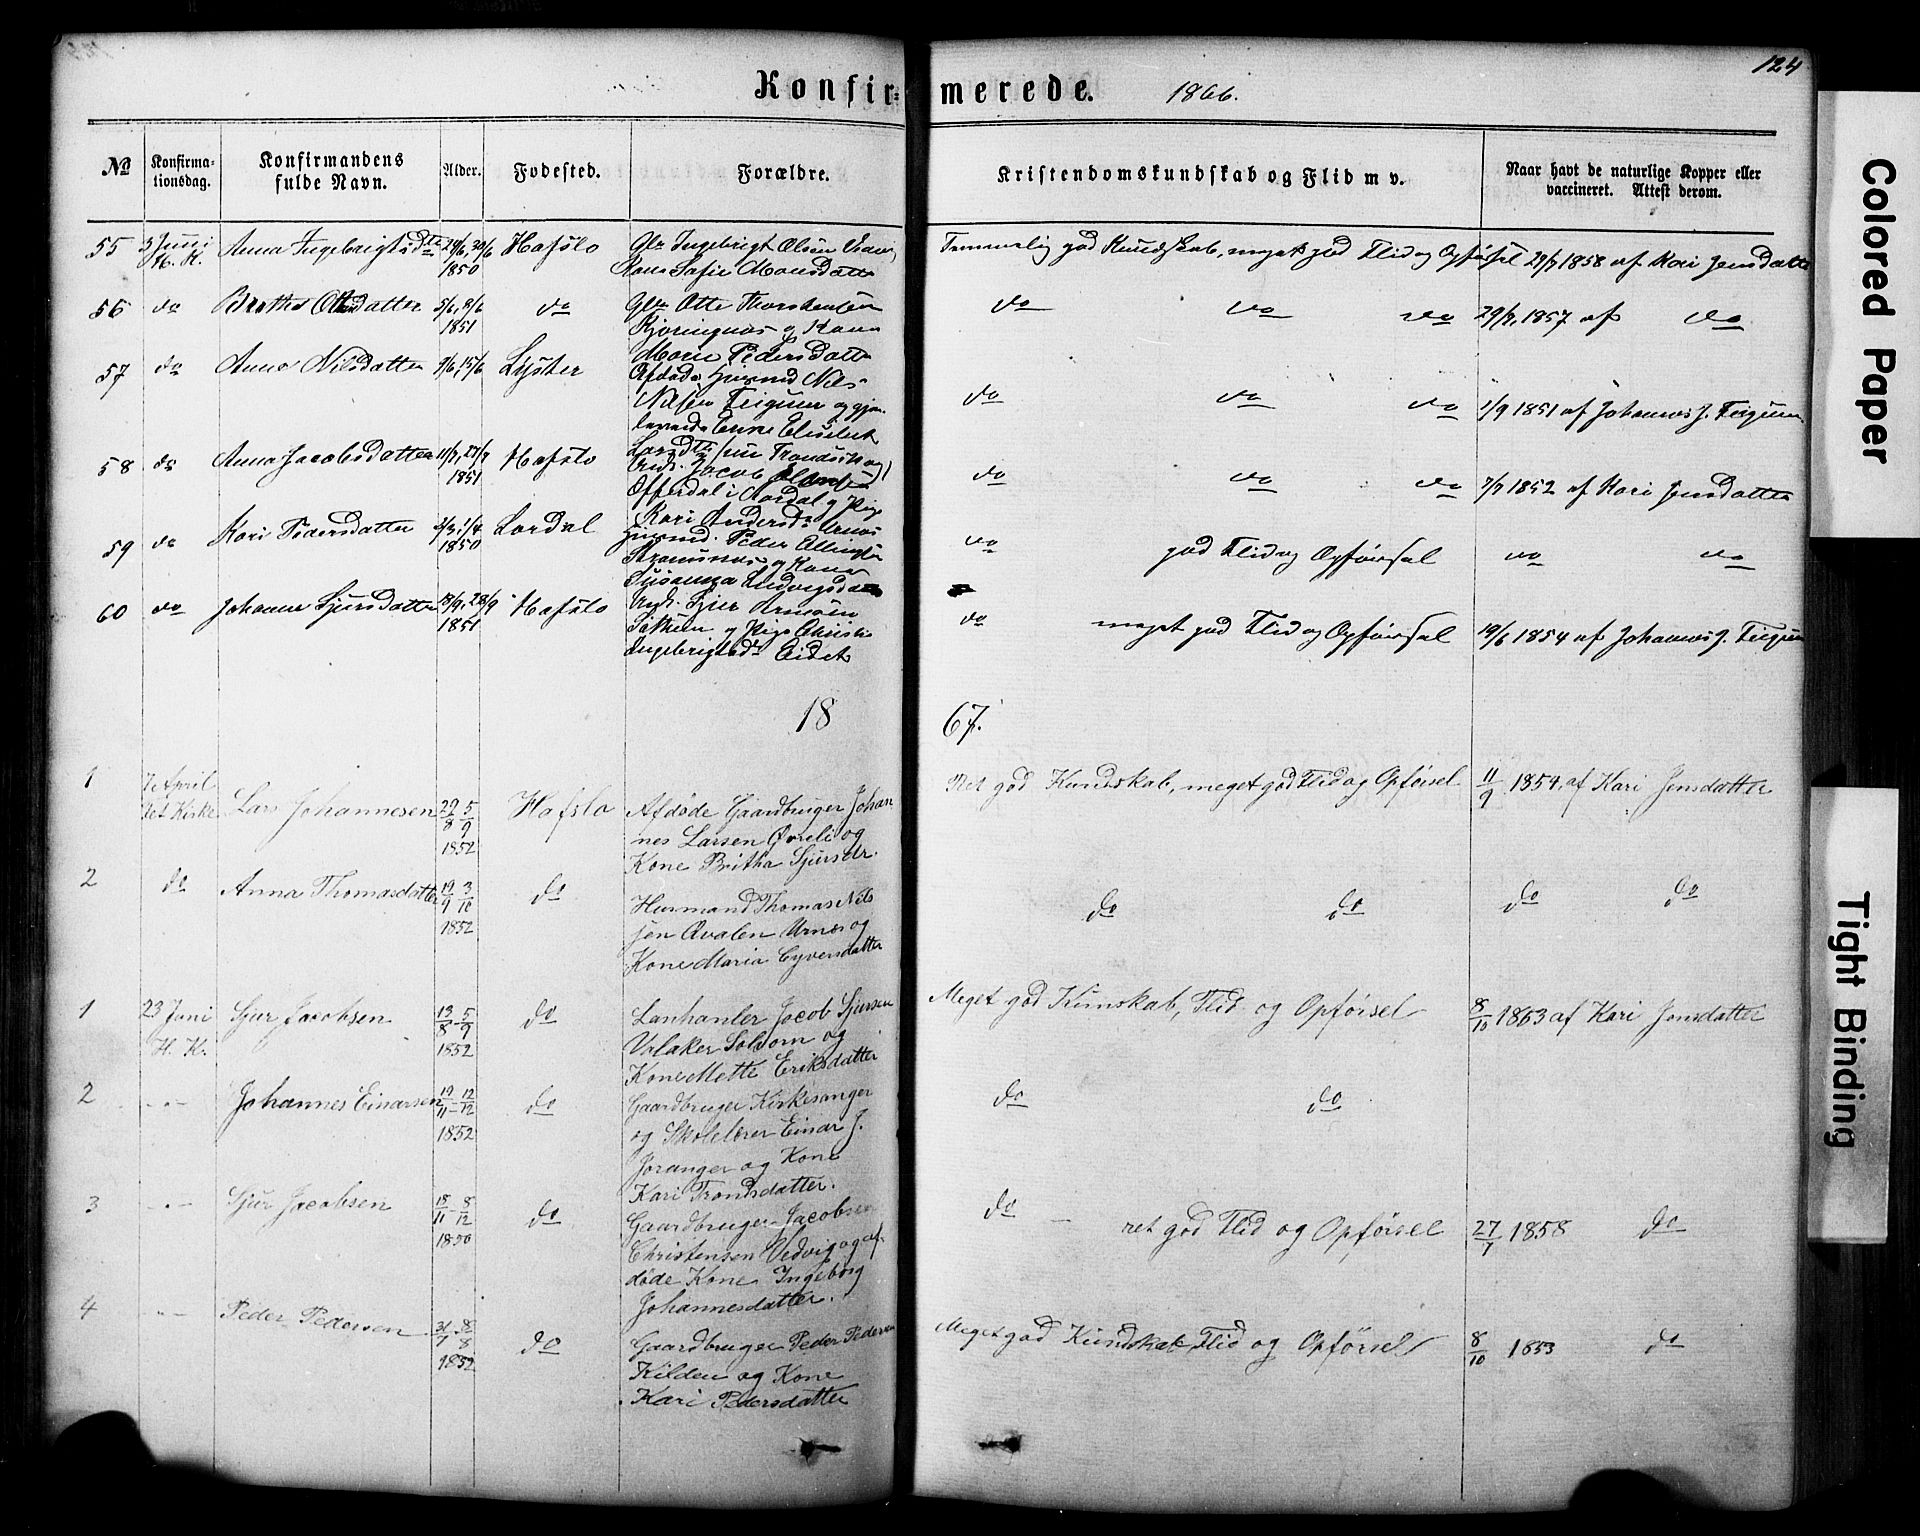 124
Konfirmerede. 1866.
No Konfirmationsdag. Konfirmandens fulde Navn. Alder. Fødested. Forældre. Kristendomskundskab og Flid m v. Naar havt de naturlige Kopper eller vaccineret. Attest derom.
55 5 Juni Anna Ingebrigtsdtr 24/6, 30/6 Hafslo Gbr Ingebrigt Olsen
H. K. 1850 Kone Sofie Monsdatter
Temmelig god Kundskab, meget god Flid og Opførsel 29/7 1858 af Kari Jensdatter
56 do Brethe Ottesdatter 5/6, 8/6 do Gbr Otte Thorstensen
1851 Kjøringnæs og Kone
Marie Pedersdatter
do do do 29/7, 1857 af do
57 do Anna Nilsdatter 9/6, 15/6 Lyster Afdøde Huusmd Nils
Nilsen Feigum og gjen-
levende Enke Elisebet
Larsdtr
do do do 1/9 1851 af Johannes J. Feigum
58 do Anna Jacobsdatter 11/7, 27/7 Hafslo
1851 Ungk. Jacob
Offerdal i Aardal og Pige
Kari Andersdr Urnæs
do do do 7/7 1852 af Kari Jensdatter
59 do Kari Pedersdatter 3/3, 1/4 Lærdal Huusmd. Peder Ellingsen
1850 og Kone
Susanna Ludvigsdatter
do god Flid og Opførsel do do
60 do Johanne Sjursdatter 13/9, 28/9 Hafslo Ungk. Sjur Arnesen
1851 og Pige Christi
Ingebrigtsdr Eidet
do meget god Flid og Opførsel 19/6 1854 af Johannes J. Feigum
18 67.
1 7 April Lars Johannesen 29/8 5/9 Hafslo Afdøde Gaardbruger Johan
Kirke 1852 nes Larsen Øvreli og
Kone Britha Sjursdr.
Ret god Kundskab, meget god Flid og Opførsel 11/9 1854, af Kari Jensdatter
2 do Anna Thomasdatter 19/9 3/10 do Husmand Thomas Nils
1852 sen Qvalen Urnes og
Kone Maria Eyversdatter
do do do do
1 23 Juni Sjur Jacobsen 13/8 - 5/9 do Lanhanler Jacob Sjursen
H. K. 1852 Valaker Solvorn og
Kone Mette Eriksdatter
Meget god Kunskab, Flid og Opførsel 8/10 1863 af Kari Jensdatter
2 -"- Johannes Einarsen 19/11 - 12/12 do Gaardbruger Kirkesanger
1852 og Skolelærer Einar J.
Joranger og Kone
Kari Trondsdatter.
do do
3 -"- Sjur Jacobsen 18/11 - 8/12 do Gaardbruger Jacobsen
1850 Christensen Vedvig og af-
døde Kone Ingeborg
Johannesdatter.
do - ret god Flid og Opførsel 27/7 1858 do
4 -"- Peder Pedersen 31/7 - 8/8 do Gaardbruger Peder Pedersen
1852 Kilden og Kone
Kari Pedersdatter
Meget god Kundskab, Flid og Opførsel 8/10 1853 do
Colored Paper
Tight Binding